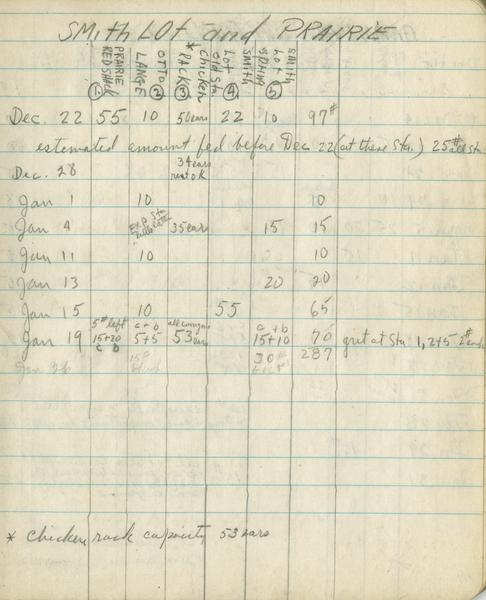 SMith LOT and PRAIRIE
PRAIRIE RED SHACK ① OTTO LANGE ② * Chicken RACK ③ Lot old Sta. ④ SMITH LOT SPring ⑤ SMITH
Dec. 22 55 10 50 ears 22 10 97#
estemated amount fed before Dec 22 (at these Sta.) 25#
Dec. 28 34 ears rest OK
Jan 1 10 10
Jan 4 35 ears 15 15
Jan 11 10 10
Jan 13 20 20
Jan 15 10 55 65
5# left a + b all corn gone a + b
Jan 19 15+20 5+5 53 ears 15+10 70 grit at Sta 1, 2+5 2# each
c b 15# 30# 287
Jan 26
* Chicken rack capacity 53 ears